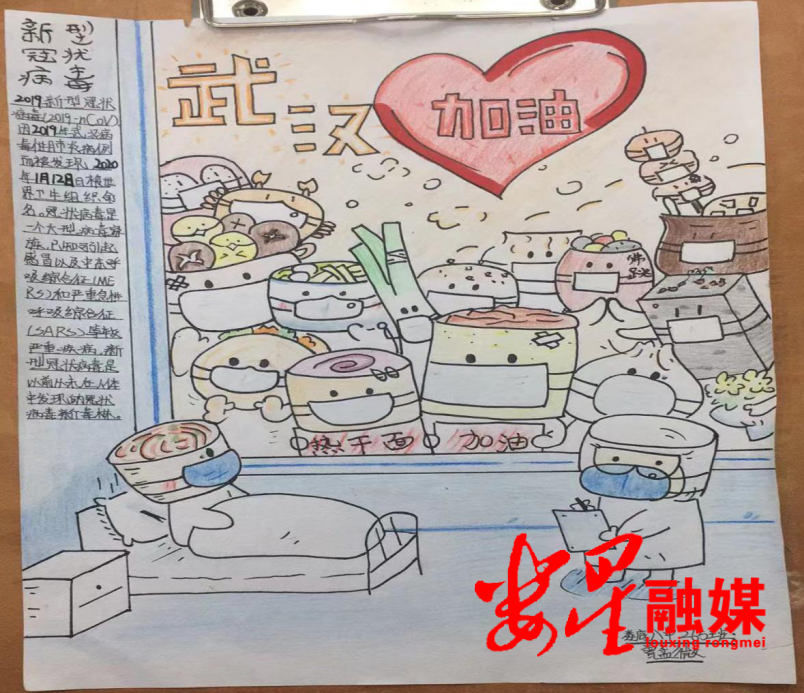 新型
冠状
病毒
2019新型冠状
病毒(2019-nCoV)
因2019年武汉病
毒性肺炎病例
而被发现，2020
年1月12日被世
界卫生组织命
名。冠状病毒是
一个大型病毒家
族，已知可引起
感冒以及中东呼
吸综合征(ME
RS)和严重急性
呼吸综合征
(SARS)等较
严重疾病。新
型冠状病毒是
以前从未在人体
中发现的冠状
病毒新毒株。
武汉
加油
热干面 加油
娄星融媒
louxing rongmei